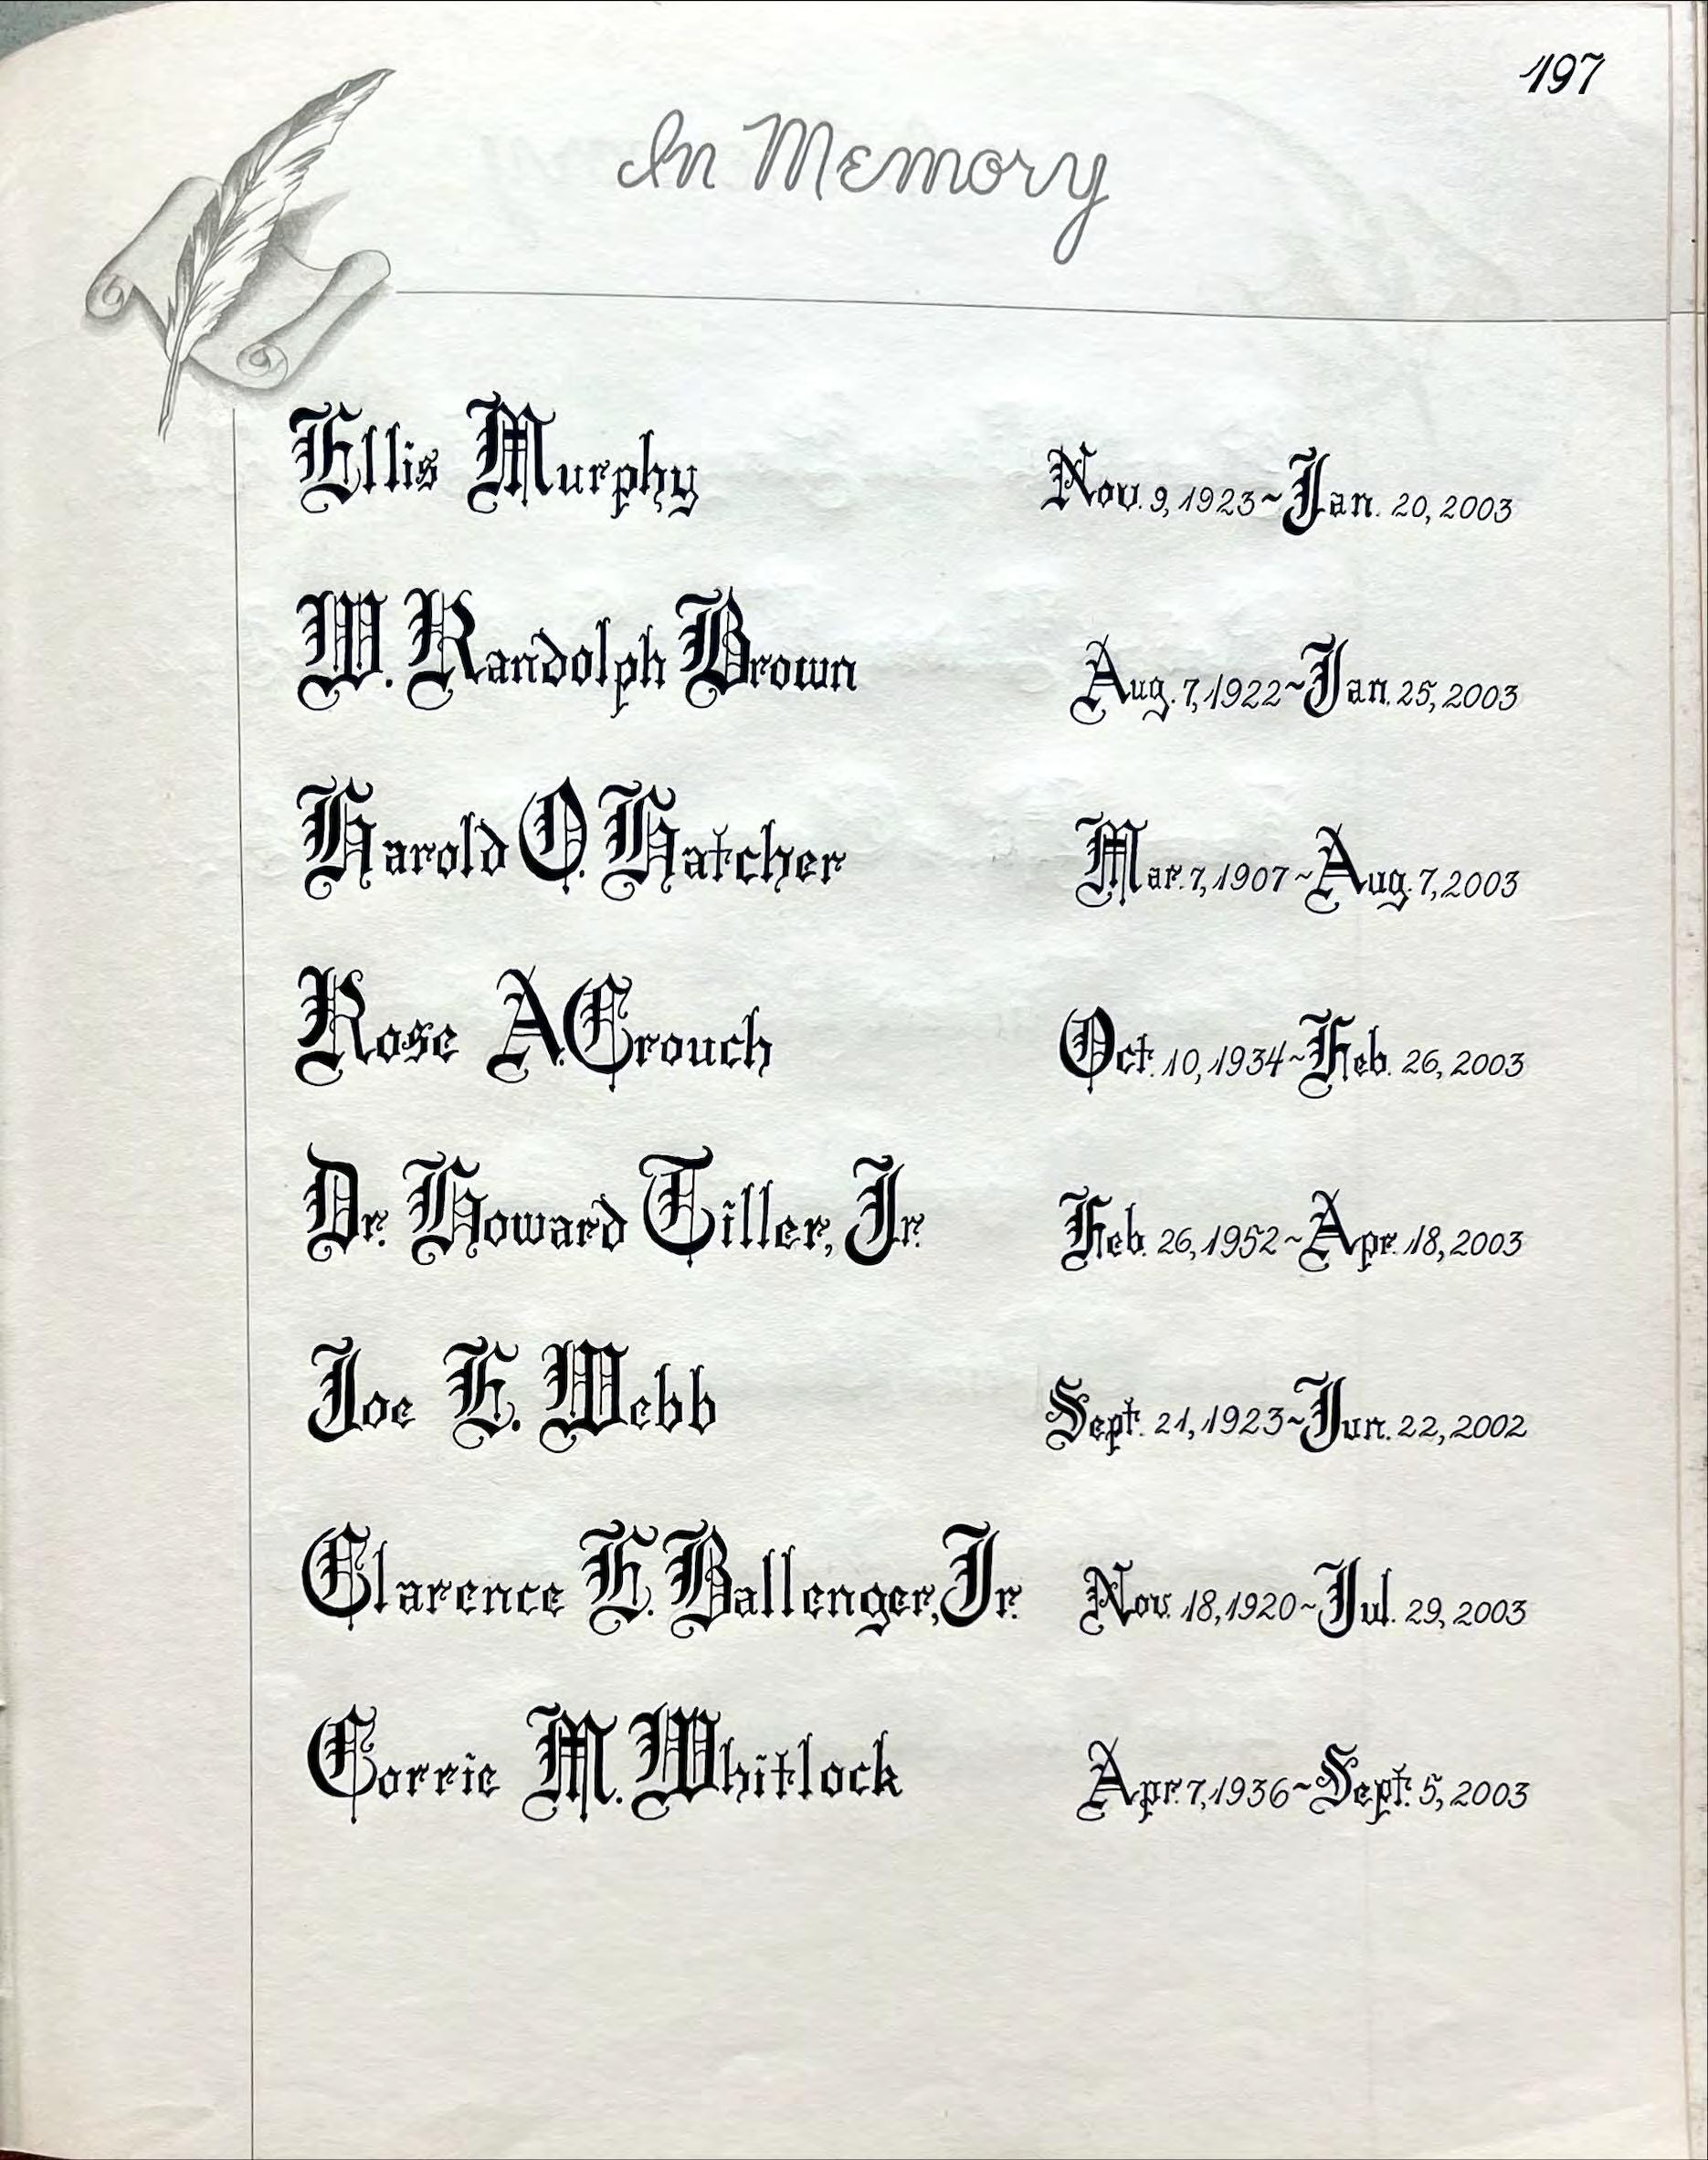 197
In Memory
Ellis Murphy Nov. 9, 1923~Jan. 20, 2003
W. Randolph Brown Aug. 7, 1922~Jan. 25, 2003
Harold O. Hatcher Mar. 7, 1907~Aug. 7, 2003
Rose A. Crouch Oct. 10, 1934~Feb. 26, 2003
Dr. Howard Tiller, Jr. Feb. 26, 1952~Apr. 18, 2003
Joe E. Webb Sept. 21, 1923~Jun. 22, 2002
Clarence E. Ballenger, Jr. Nov. 18, 1920~Jul. 29, 2003
Corrie M. Whitlock Apr. 7, 1936~Sept. 5, 2003